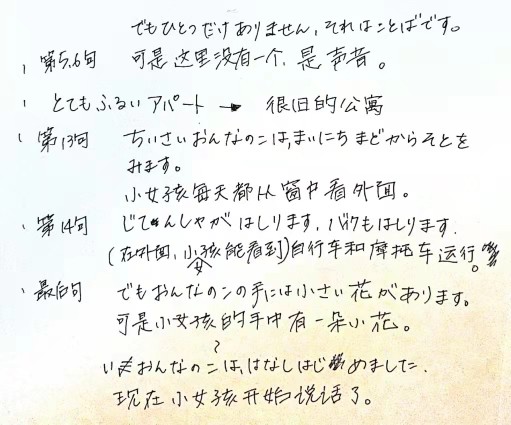 でもひとつだけありません、それはことばです。
、第5.6句 可是这里没有一个，是声音。
、とてもふるいアパート → 很旧的公寓
、第13句 ちいさいおんなのこは、まいにちまどからそとを
みます。
小女孩每天都从窗中看外面。
、第14句 じてんしゃがはしります、バイクもはしります.
(在外面，小女孩能看到)自行车和摩托车运行。
、最后句 でもおんなのこの手には小さい花があります。
可是小女孩的手中有一朵小花。
いまおんなのこは、はなしはじめました.
现在小女孩开始说话了。